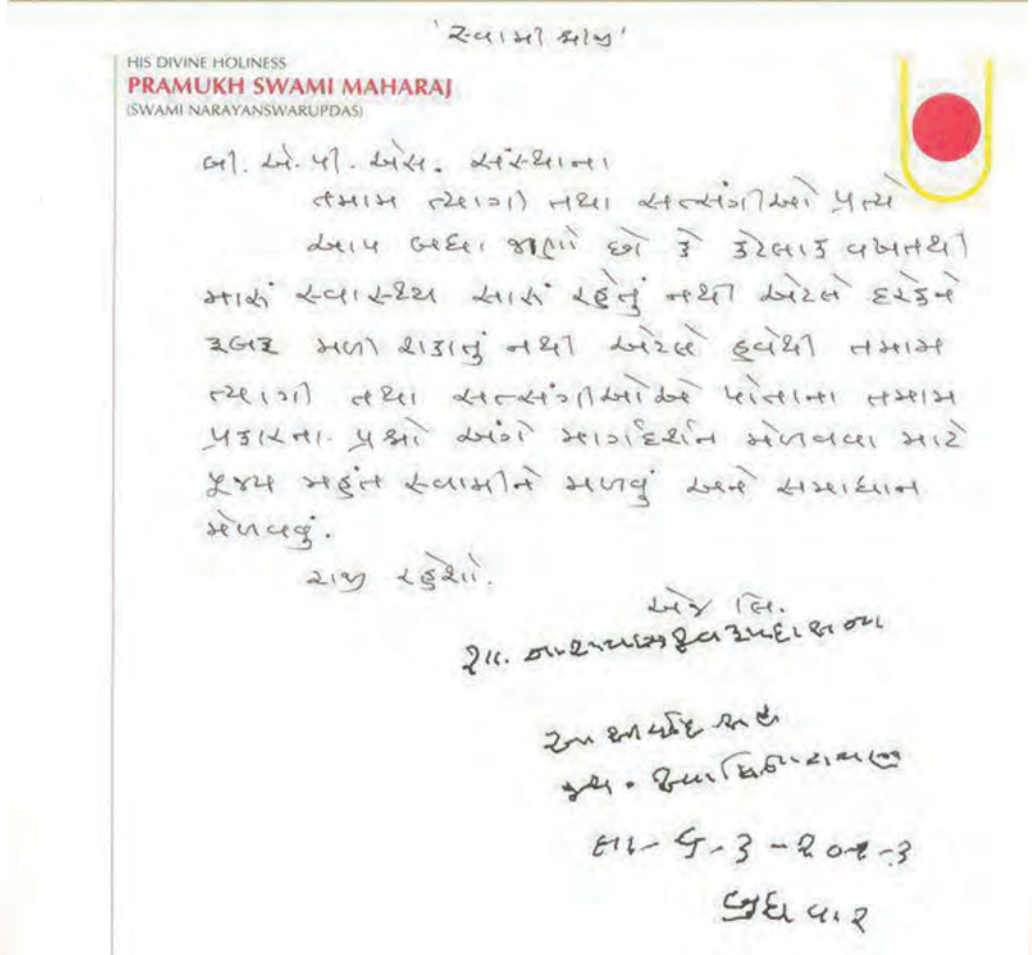 'સ્વામીશ્રીજી'
HIS DIVINE HOLINESS
PRAMUKH SWAMI MAHARAJ
(SWAMI NARAYANSWARUPDAS)
બી. એ. પી. એસ. સંસ્થાના
તમામ ત્યાગી તથા સત્સંગીઓ પ્રત્યે
આપ બધા જાણો છો કે કેટલાક વખતથી
મારું સ્વાસ્થ્ય સારું રહેતું નથી એટલે દરેકને
રૂબરૂ મળી શકાતું નથી એટલે હવેથી તમામ
ત્યાગી તથા સત્સંગીઓએ પોતાના તમામ
પ્રકારના પ્રશ્નો અંગે માર્ગદર્શન મેળવવા માટે
પૂજ્ય મહંત સ્વામીને મળવું અને સમાધાન
મેળવવું.
રાજી રહેશો.
એજ લિ.
શા. નારાયણસ્વરૂપદાસના
આશીર્વાદ સહ
જય સ્વામિનારાયણ
તા- ૬-૩-૨૦૧૩
બુધવાર